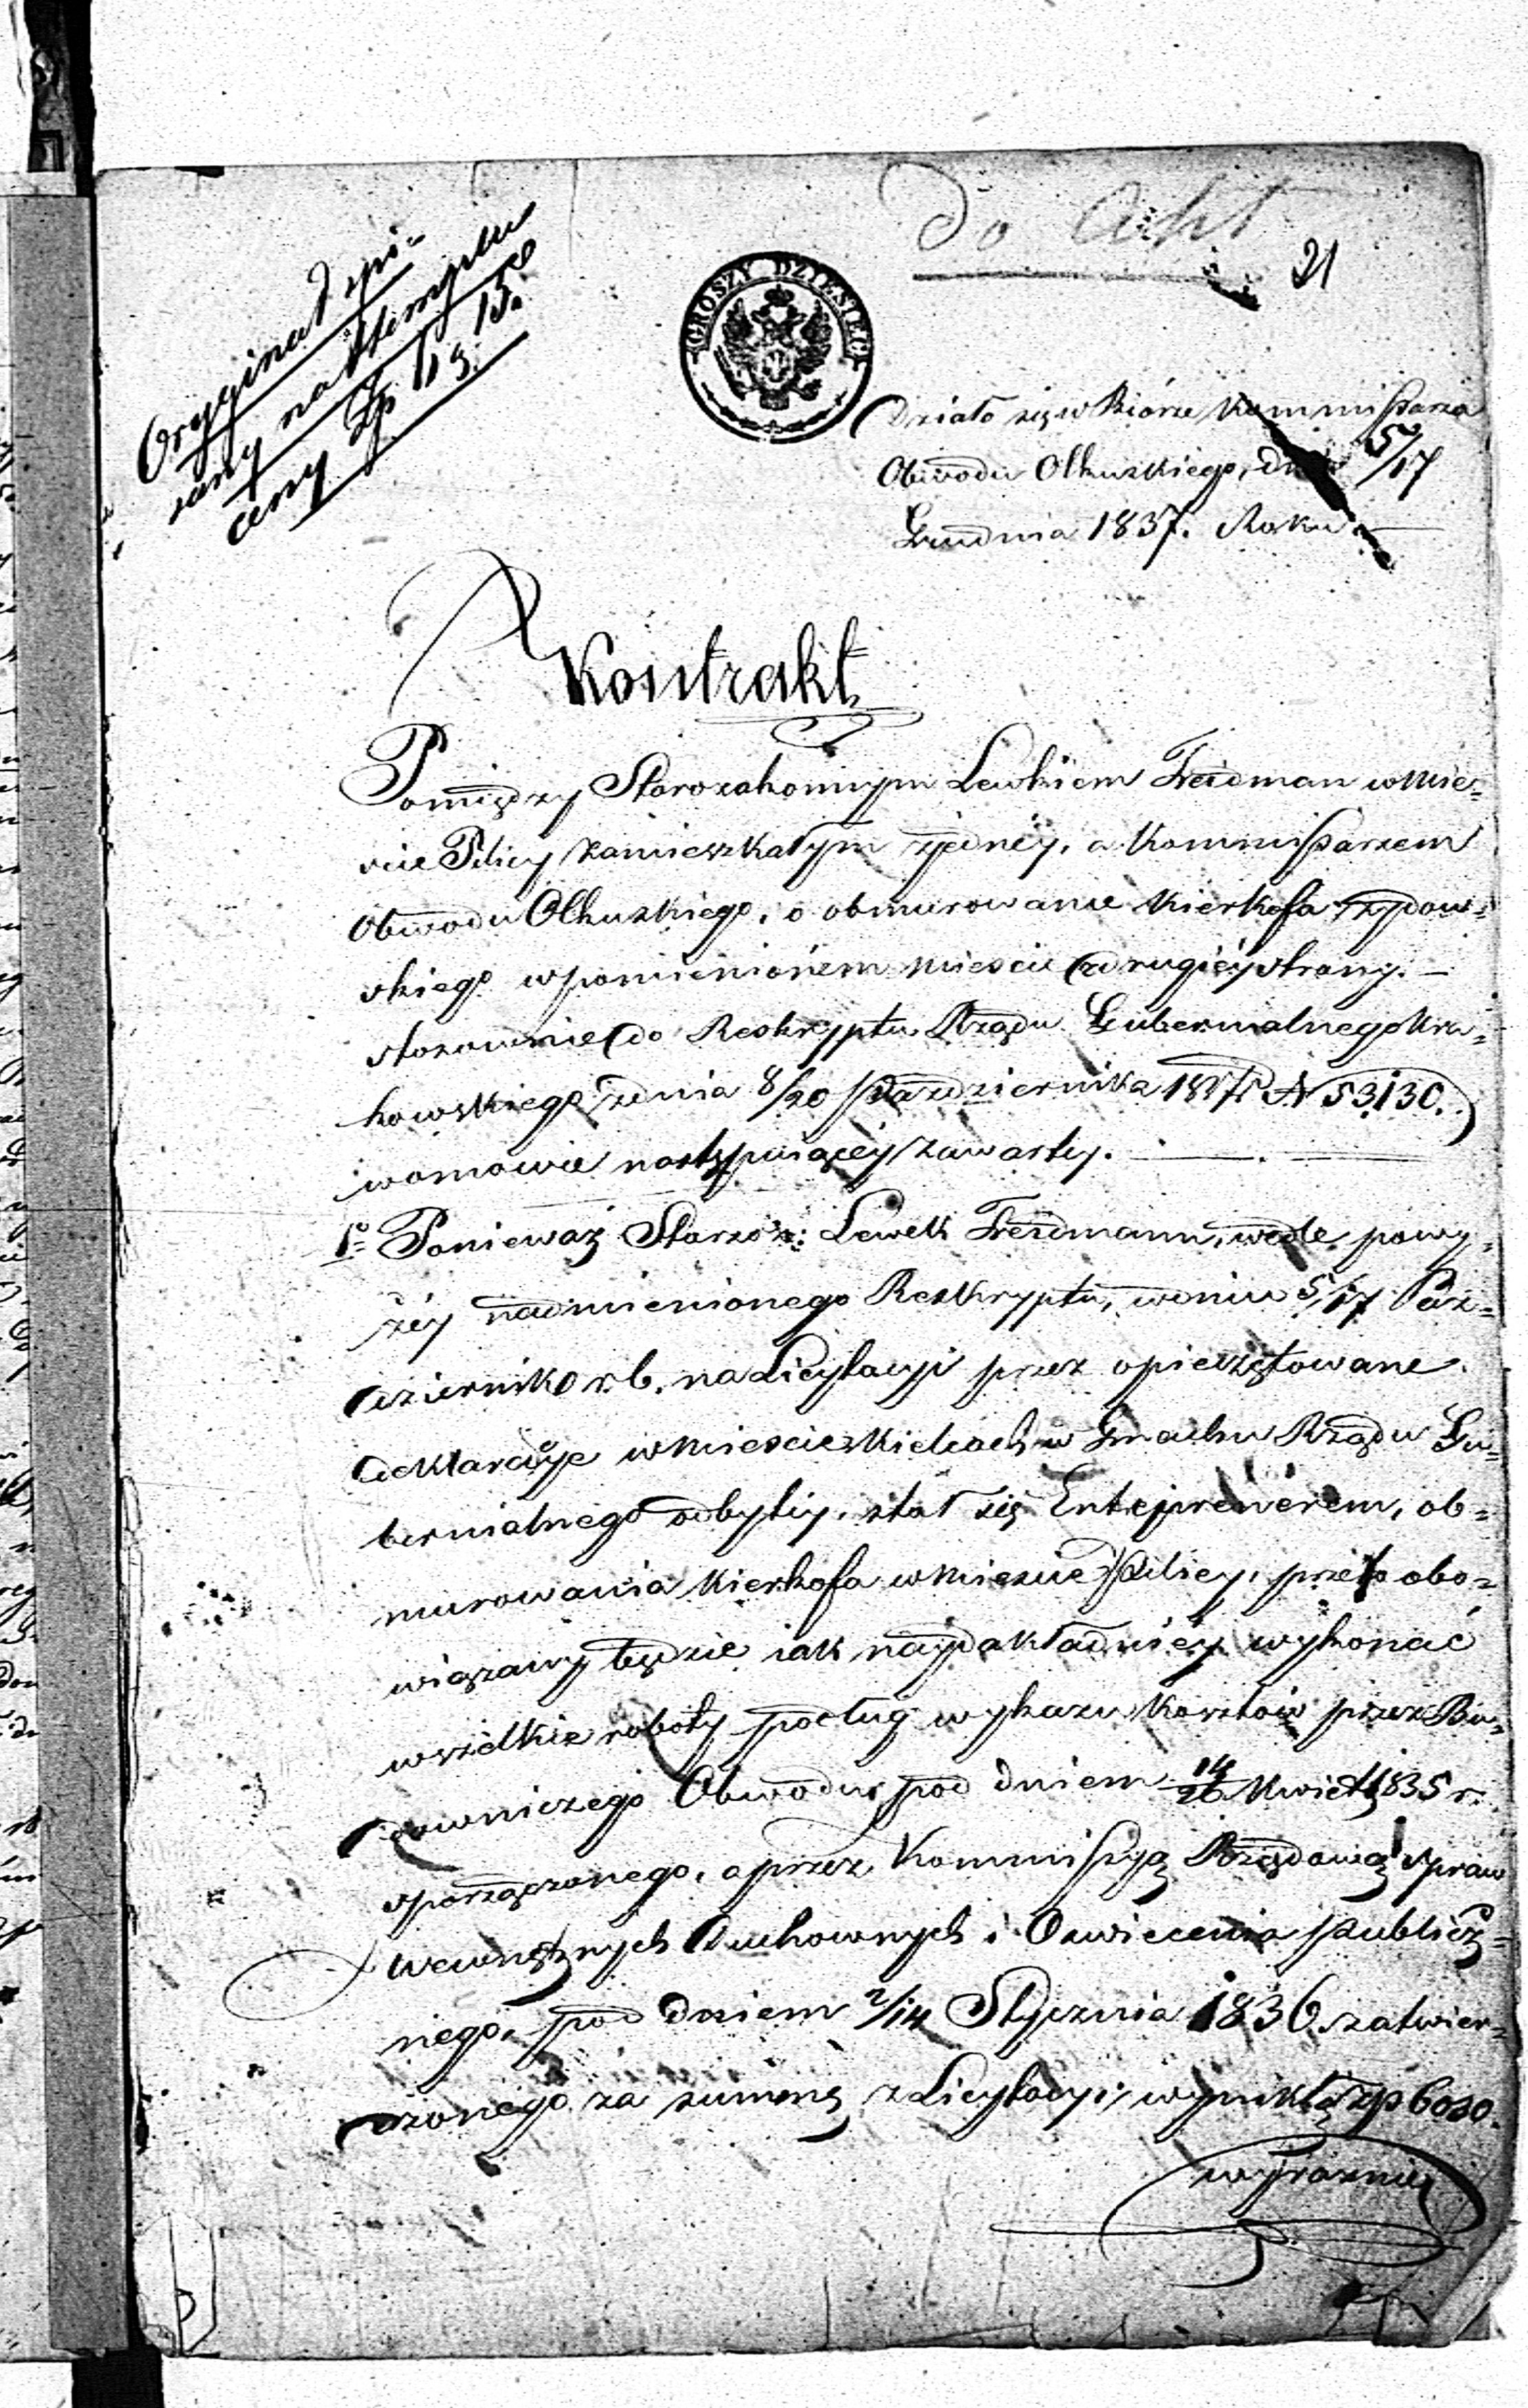 do Akt
21
Oryginał spi-
sany na stemplu
ceny Zp 1 g. 15.
GROSZY DZIESIĘĆ
Działo się w Biórze Kommissarza
Obwodu Olkuskiego, dnia 5/17
Grudnia 1837. Roku
Kontrakt
Pomiędzy Starozakonnym Lewkiem Freidman w Mie-
scie Pilicy zamieszkałym z jednéy, a Kommissarzem
Obwodu Olkuskiego, o obmurowanie Kierkofa żydow-
skiego w pomienioném Miescie z drugiéy strony. —
stosownie do Reskryptu Rządu Gubernialnego Kra-
kowskiego z dnia 8/20 Października 1837 r N 53130.
w omowie następuiącéy zawarty.
1o Ponieważ Starzoz: Lewek Freidmann, wedle powy-
żéy nadmienionego Reskryptu, w dniu 5/17 Paź-
dziernika r. b. na Licytacyi przez opieczętowane
deklaracye w Miescie Kielcach w Gmachu Rządu Gu-
bernialnego odbytéy, stał się Enteprenerem, ob-
murowania Kierkofa w Miescie Pilicy, przeto obo-
wiązany będzie iak naydokładniéy wykonać
wszelkie roboty podług wykazu kosztów przez Bu-
downiczego Obwodu pod dniem 14/26 Kwiet 1835 r.
sporządzonego, a przez Kommissyą Rządową Spraw
Wewnętznych Duchownych i Oswiecenia Publicz-
nego, pod dniem 2/14 Stycznia 1836 zatwier-
dzonego za summę z Licytacyi wynikłą zp 6030.
wyraznie